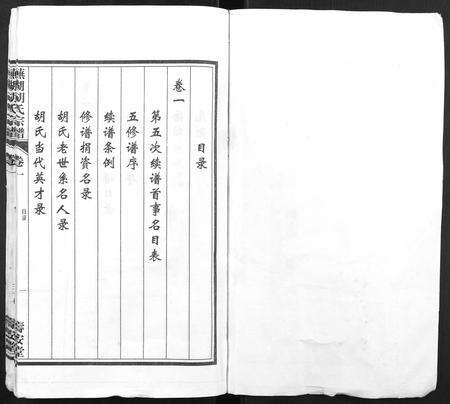 目录
卷一
第五次续谱首事名目表
五修谱序
续谱条例
修谱捐资名录
胡氏老世系名人录
胡氏当代英才录
胡氏宗譜
卷一
目录
一